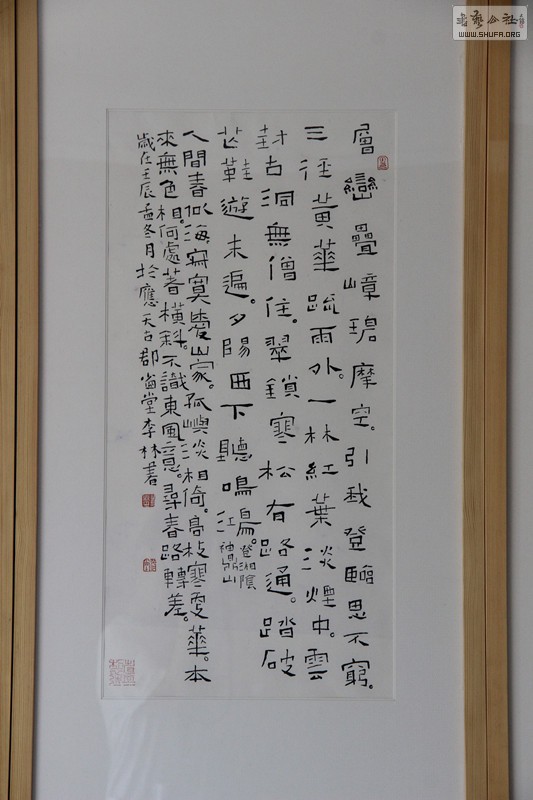 層巒疊嶂碧摩空。引我登臨思不窮。
三徑黃華疏雨外。一林紅葉淡煙中。雲
封古洞無僧住。翠鎖寒松有路通。踏破
芒鞋遊未遍。夕陽西下聽鳴鴻。登湘陰
神鼎山
人間春似海。寂寞愛山家。孤嶼淡相倚。高枝寒更華。本
來無色相。何處著橫斜。不識東風意。尋春路轉差。
歲在壬辰孟冬月於應天古郡堂李林書
書藝公社
WWW.SHUFA.ORG